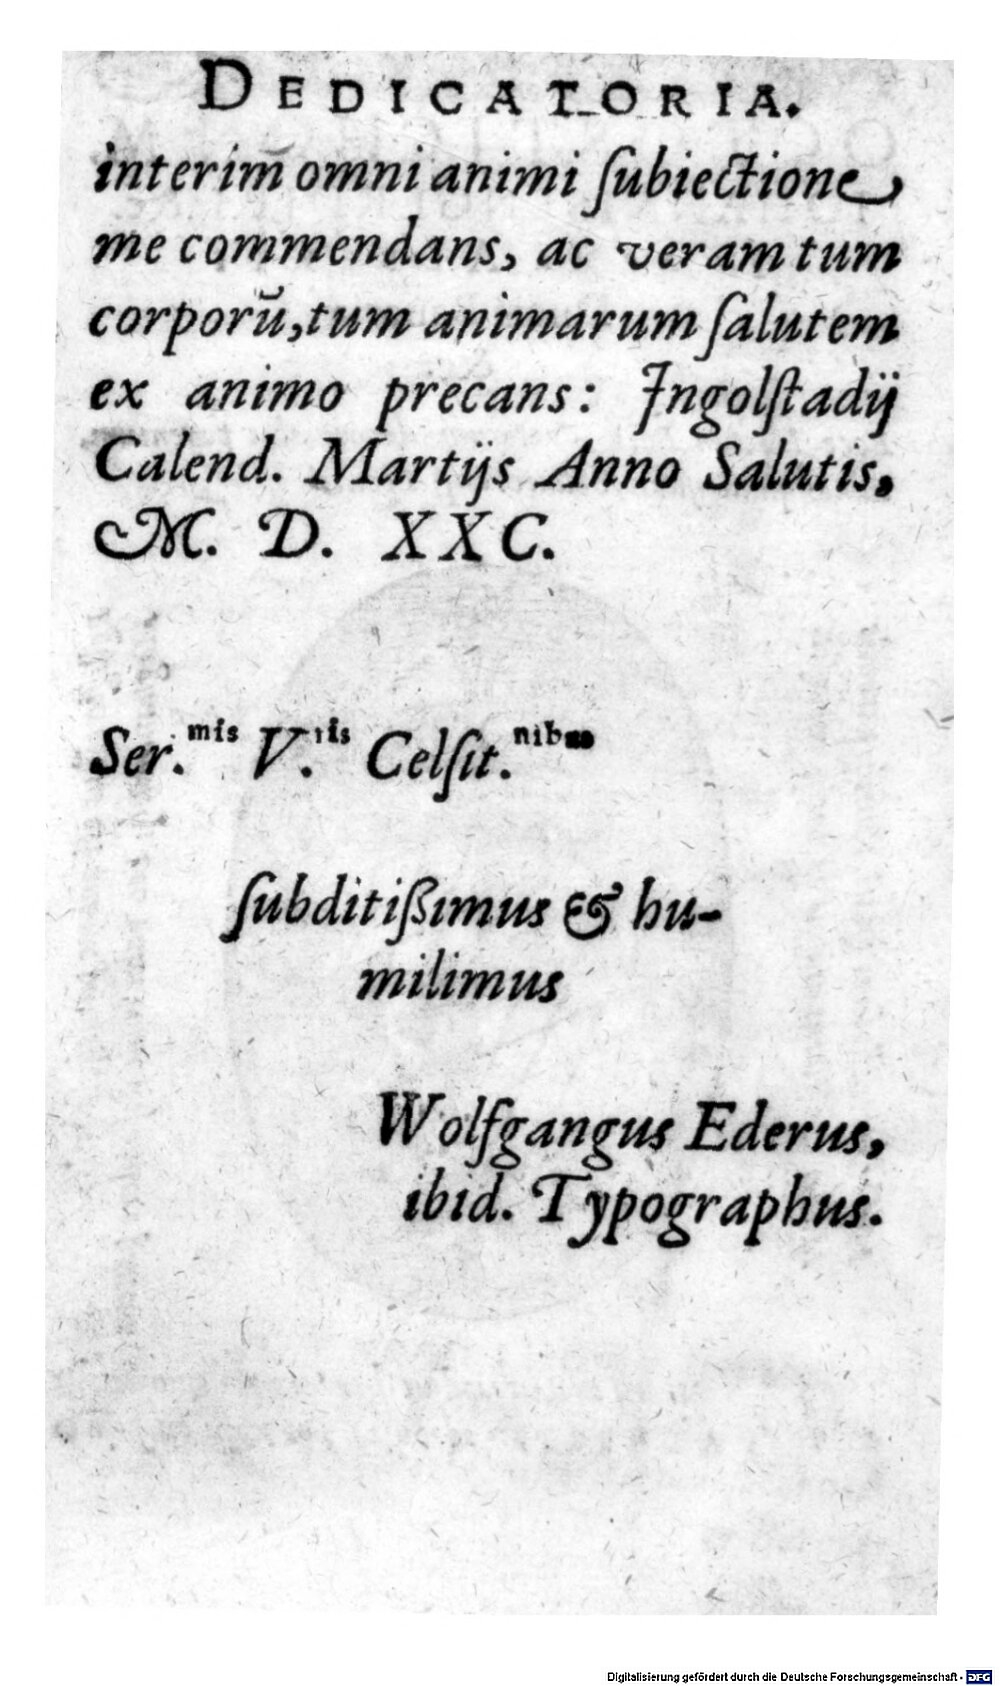 DEDICATORIA.
interim̃ omni animi ſubiectione
me commendans, ac veram tum
corporũ, tum animarum ſalutem
ex animo precans: Ingolſtadij
Calend. Martijs Anno Salutis,
M. D. XXC.
Ser.mis V.ris Celſit.nibus
ſubditißimus & hu-
milimus
Wolfgangus Ederus,
ibid. Typographus.
Digitalisierung gefördert durch die Deutsche Forschungsgemeinschaft - DFG